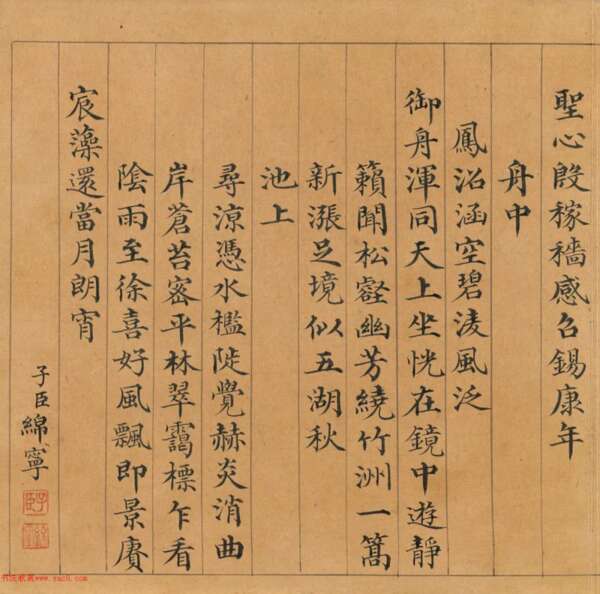 聖心殷稼穡感召錫康年
舟中
鳳沼涵空碧淩風泛
御舟渾同天上坐恍在鏡中遊靜
籟聞松壑幽芳繞竹洲一篙
新漲足境似五湖秋
池上
尋涼憑水檻陡覺赫炎消曲
岸蒼苔密平林翠靄標乍看
陰雨至徐喜好風飄即景賡
宸藻還當月朗宵
子臣綿寧
书法欣赏www.yac8.com